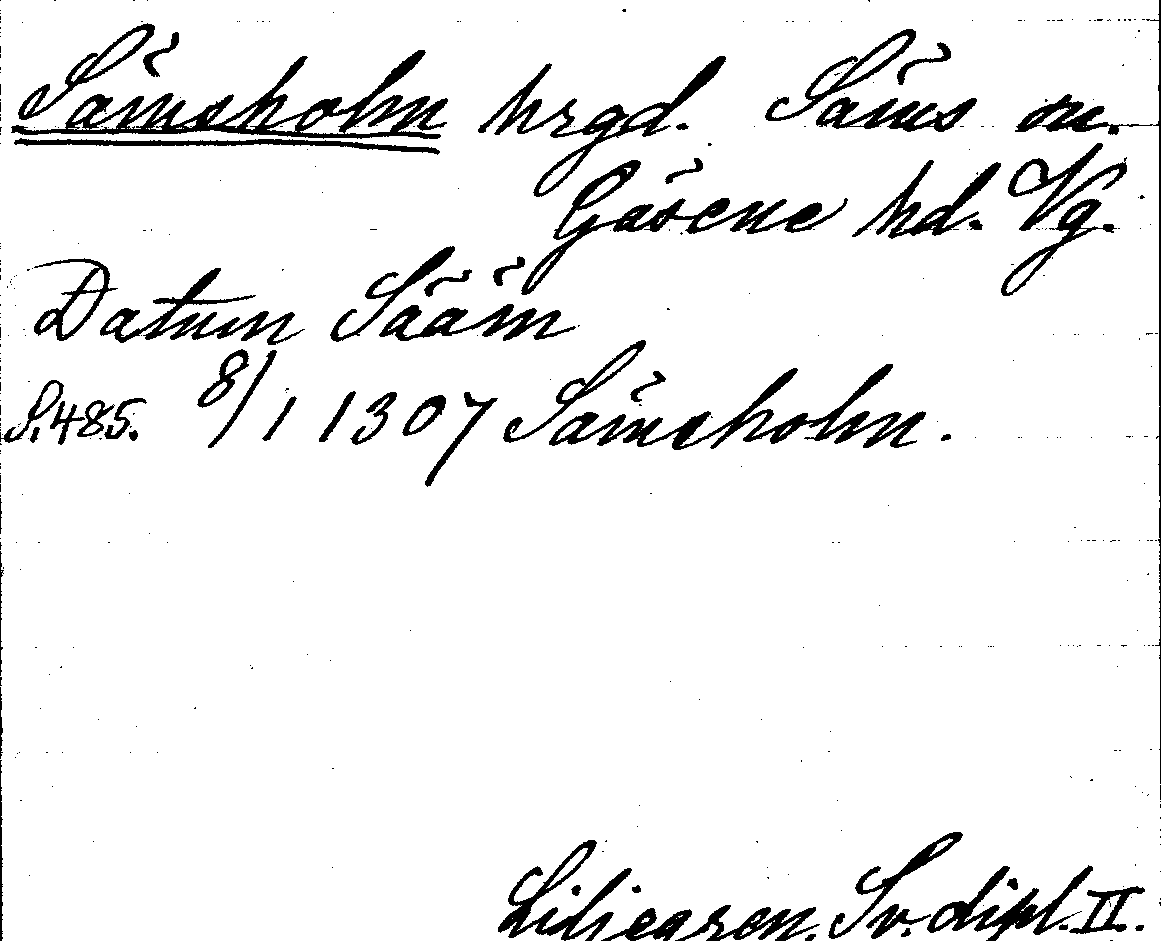 Sämsholm hrgd. Säms sn.
Gäsene hd. Vg.
Datum Sääm
S. 485. 8/1 1307 Sämsholm.
Liljegren, Sv. dipl. II.